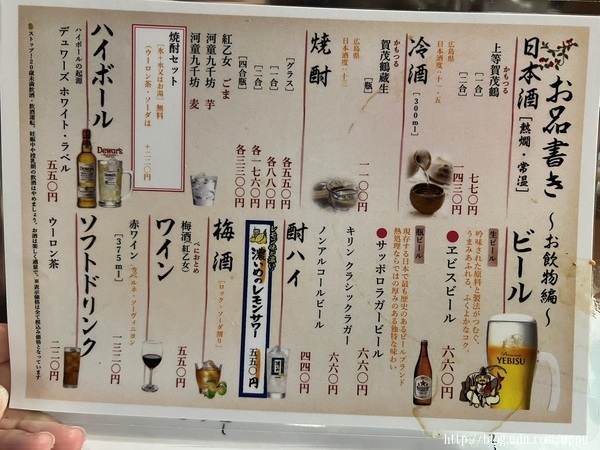 お品書き 〜お飲物編〜
日本酒 [熱燗・常温]
かもつる
上等賀茂鶴
[一合] 七七〇円
[二合] 一四三〇円
広島県
日本酒度:+一・五
冷酒 [300ml]
かもつる
賀茂鶴蔵生
[瓶] 一一〇〇円
広島県
焼酎
[グラス] 各五五〇円
[一合] 各八八〇円
[二合] 各一七六〇円
[四合瓶] 各三三〇〇円
紅乙女 ごま
河童九千坊 芋
河童九千坊 麦
焼酎セット
[氷+水又はお湯] 無料
(ウーロン茶・ソーダは +二二〇円
ハイボール
ハイボールの起源
デュワーズ ホワイト・ラベル
五五〇円
Dewar's
ビール
生ビール
吟味された原料と製法がつなぐ、
うまみあふれる、ふくよかなコク。
●ヱビスビール 六六〇円
YEBISU
瓶ビール
現存する日本で最も歴史のあるビールブランド
熱処理ならではの厚みのある独特な味わい
●サッポロラガービール 六六〇円
キリン クラシックラガー 六六〇円
ノンアルコールビール 四四〇円
酎ハイ
濃いめのレモンサワー
五五〇円
梅酒
[ロック・ソーダ割り]
べにおとめ
梅酒[紅乙女] 五五〇円
ワイン
赤ワイン カベルネ・ソーヴィニヨン
[375ml] 一三二〇円
ソフトドリンク
ウーロン茶 二二〇円
ストップ!20歳未満飲酒・飲酒運転。妊娠中や授乳期の飲酒はやめましょう。お酒は楽しく適量で。※表示価格は全て税込み価格となっています
http://blog.udn.com/appu